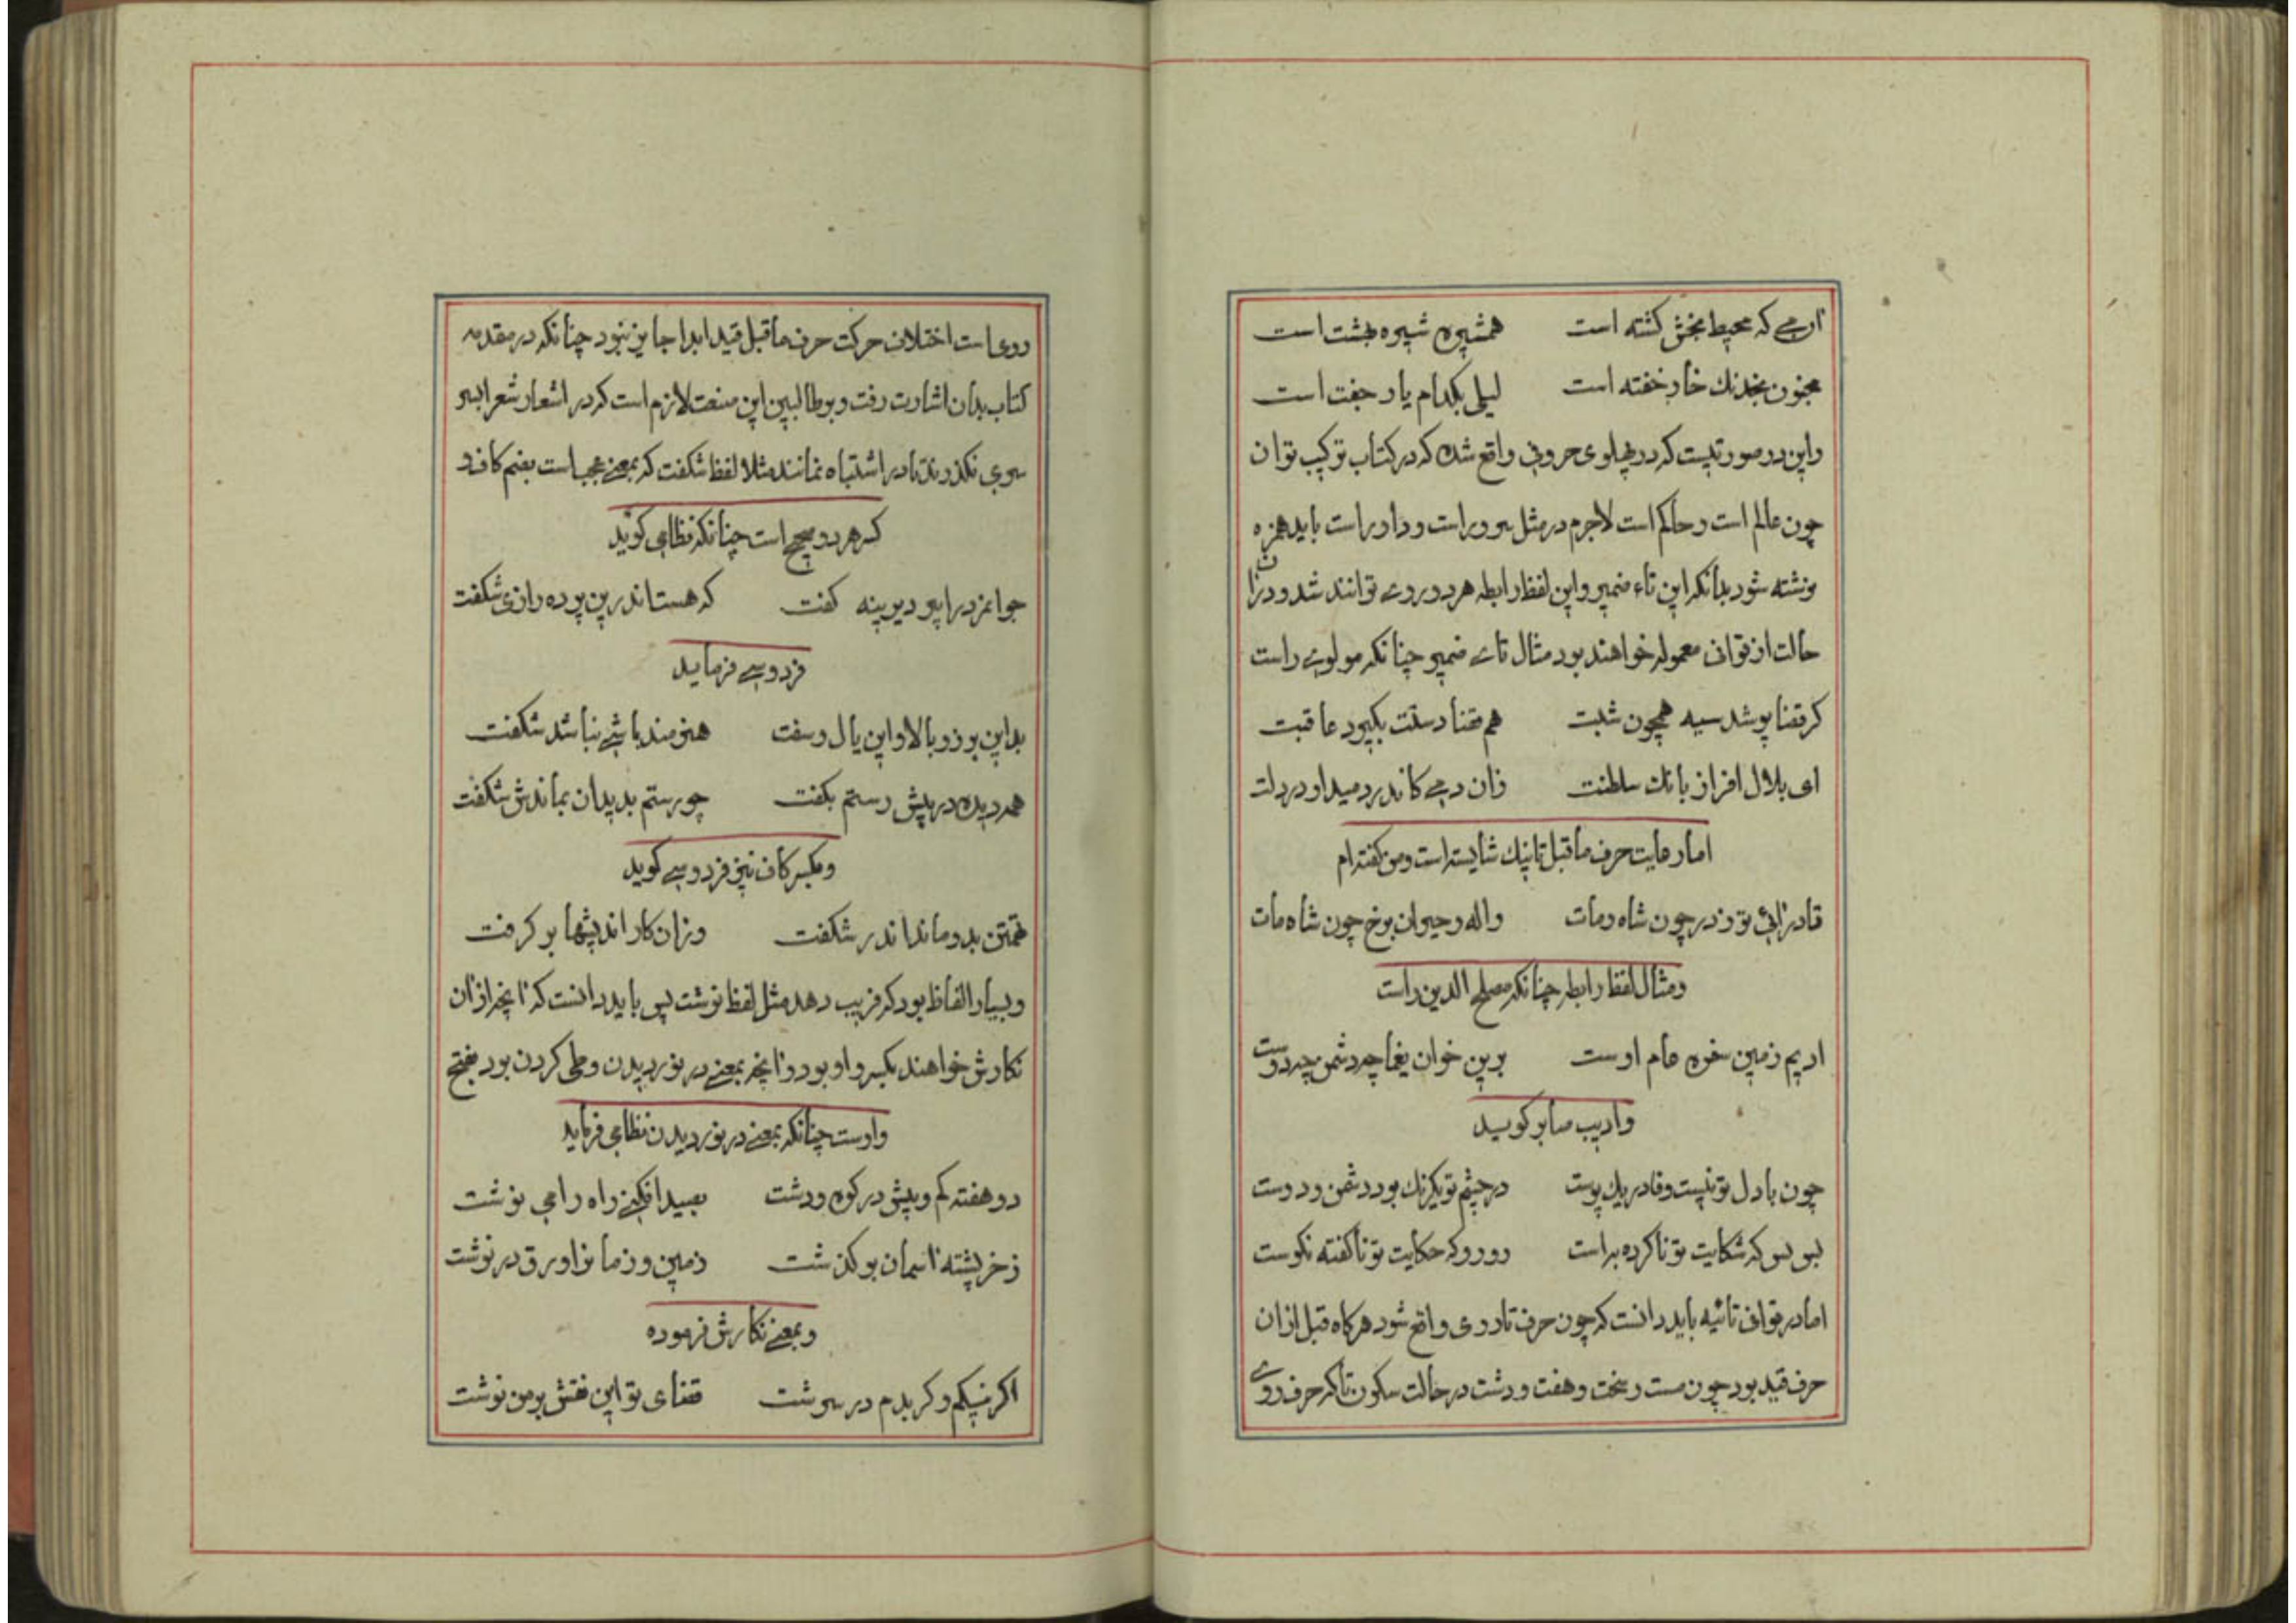 که محیط بخش کشته است همشیره شیره بهشت است
مجنون بخدنك خار خفته است لیلی بکدام یار جفت است
واین در صورتیست که در پهلوی حروفی واقع شده که در کتاب ترکیب توان
چون عالم است وحاکم است لاجرم در مثل سرور است وداور است باید همزه
نوشته شود بدانکه این تاء ضمیر واین لفظ رابطه هر دو روی توانند شد ودران
حالت از قوافی معموله خواهند بود مثال تای ضمیر چنانکه مولوی راست
کر قضا پوشد سیه همچون شبت هم قضا دستت بکیرد عاقبت
ای بلال افراز بانك سلطنت زان دمی کاندر دمید او در دلت
اما رعایت حرف ماقبل تا نیك شایسته است ومن کفته ام
قادر زائی تو زدر چون شاه ومات واله وحیران برخ چون شاه مات
ومثال لفظ رابطه چنانکه مصلح الدین راست
ادیم زمین سفره عام اوست برین خوان یغما چه دشمن چه دوست
وادیب صابر کوید
چون با دل تو نیست وفا در یك پوست در چشم تو یکرنك بود دشمن ودوست
بس بس که شکایت تو ناکرده به است رو رو که حکایت تو ناکفته نکوست
اما در قوافی تائیه باید دانست که چون حرف تا روی واقع شود هرکاه قبل ازان
حرف قید بود چون مست وسخت وهفت ودشت در حالت سکون تا که حرف روی
روی است اختلاف حرکت حرف ماقبل قید ابدا جایز نبود چنانکه در مقدمه
کتاب بدان اشارت رفت وبر طالبین این صنعت لازم است که در اشعار شعرا بسر
سری نکذرند تا در اشتباه نمانند مثلا لفظ شکفت که بمعنی عجب است بضم کاف و
کسر هر دو صحیح است چنانکه نظامی کوید
جوانمرد را پیر دیرینه کفت که هست اندرین پرده رازی شکفت
فردوسی فرماید
بداین برز وبالا واین یال وسفت هنرمند باشی نباشد شکفت
همه دیده در پیش رستم بکفت چو رستم بدیدان بماندش شکفت
وبکسر کاف نیز فردوسی کوید
تهمتن بدو ماند اندر شکفت وزان کار اندیشها بر کرفت
وبسیار الفاظ بود که فریب دهد مثل لفظ نوشت پس باید دانست که آنچه ازان
نکارش خواهند بکسر واو بود وآنچه بمعنی در نوردیدن وطی کردن بود بفتح
واوست چنانکه بمعنی در نوردیدن نظامی فرماید
دو هفته کم وبیش در کوه ودشت بصید افکنی راه را می نوشت
زخر پشته آسمان بر کذشت زمین وزمانرا ورق در نوشت
وبمعنی نکارش فرموده
اکر نیکم وکر بدم در سرشت قضای تو این نقش بر من نوشت